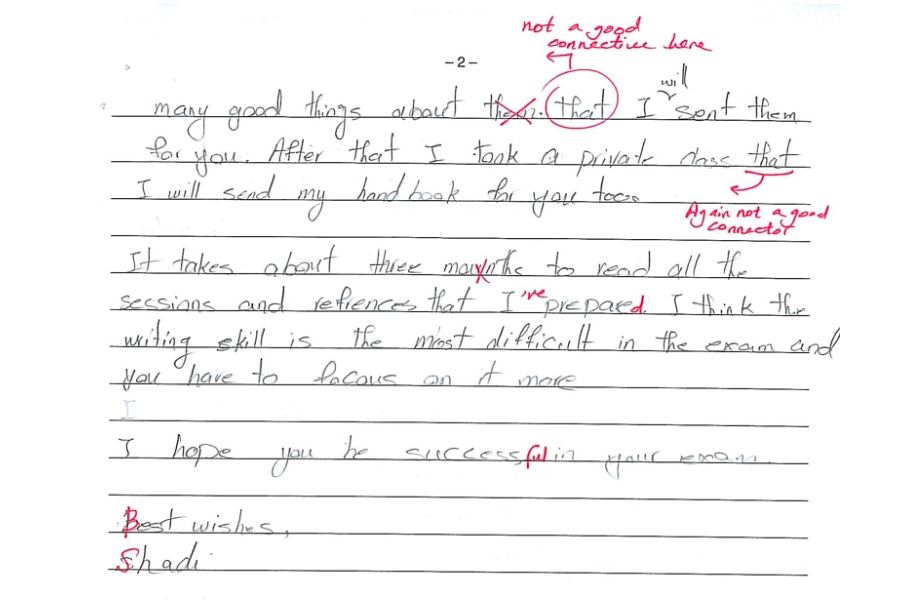 not a good
connective here
-2-
will
many good things about them. that I sent them
for you. After that I took a private class that
I will send my hand book for you too.
Again not a good
connector
It takes about three mounths to read all the
sessions and refiences that I've prepared. I think the
writing skill is the most difficult in the exam and
you have to focous on it more
I
I hope you be successful in your exam.
Best wishes,
Shadi